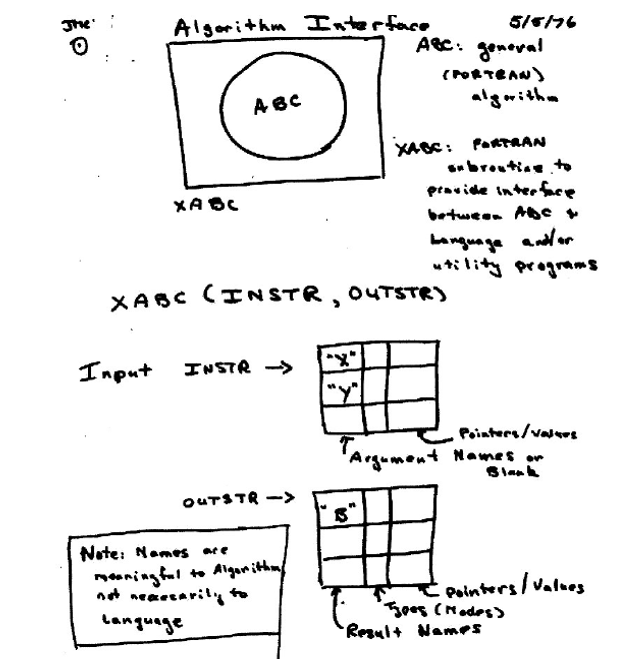 Algorithm Interface 5/5/76
ABC
XABC
ABC: general
(FORTRAN)
algorithm
XABC: FORTRAN
subroutine to
provide interface
between ABC &
Language and/or
utility programs
XABC (INSTR, OUTSTR)
Input INSTR →
"X"
"Y"
Pointers/Values
Argument Names or
Blank
OUTSTR →
"B"
Pointers/Values
Types (Modes)
Result Names
Note: Names are
meaningful to Algorithm,
not necessarily to
Language